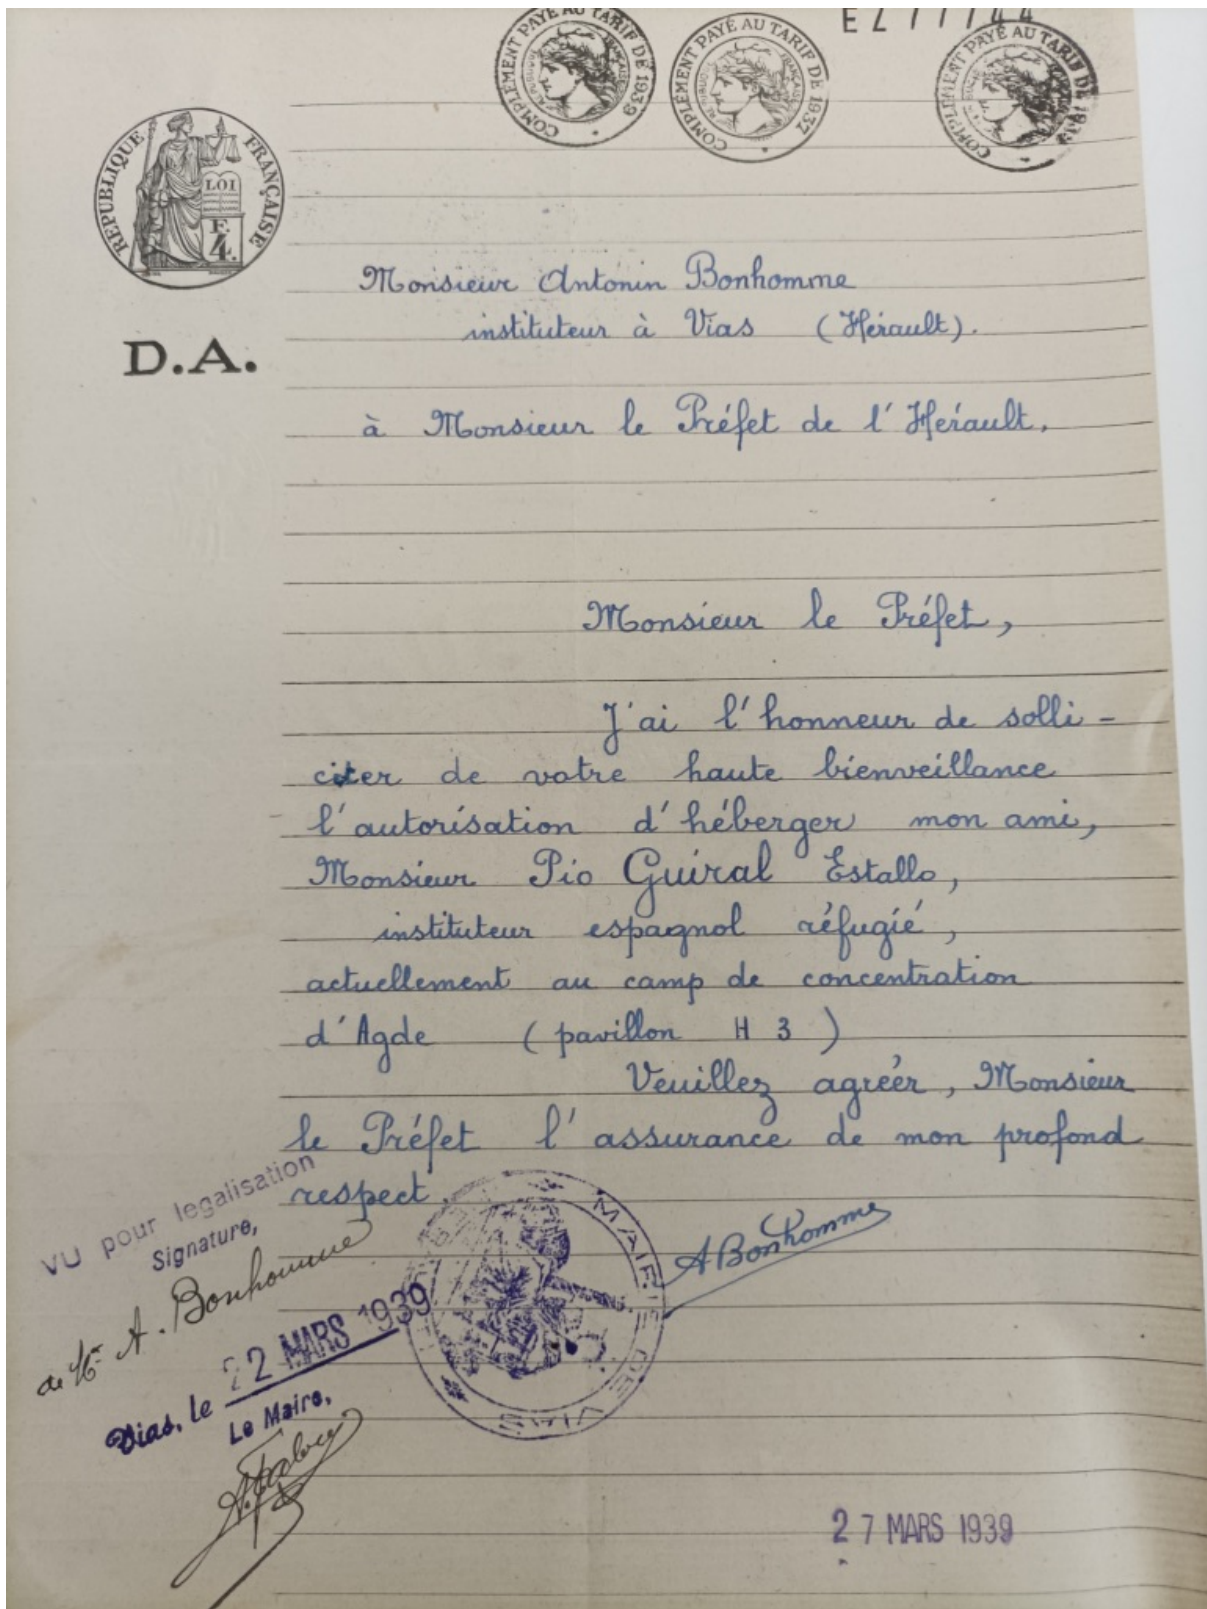 COMPLÉMENT PAYÉ AU TARIF DE 1939
COMPLÉMENT PAYÉ AU TARIF DE 1937
COMPLÉMENT PAYÉ AU TARIF DE 1939
REPUBLIQUE FRANÇAISE
LOI
F.
4.
D.A.
Monsieur Antonin Bonhomme
instituteur à Vias (Hérault).
à Monsieur le Préfet de l'Hérault.
Monsieur le Préfet,
J'ai l'honneur de solli-
citer de votre haute bienveillance
l'autorisation d'héberger mon ami,
Monsieur Pio Guiral Estallo,
instituteur espagnol réfugié,
actuellement au camp de concentration
d'Agde (pavillon H 3)
Veuillez agréer, Monsieur
le Préfet l'assurance de mon profond
respect.
A Bonhomme
VU pour legalisation
Signature,
de Mr A. Bonhomme
Vias, le 22 MARS 1939
Le Maire,
MAIRIE DE VIAS
27 MARS 1939